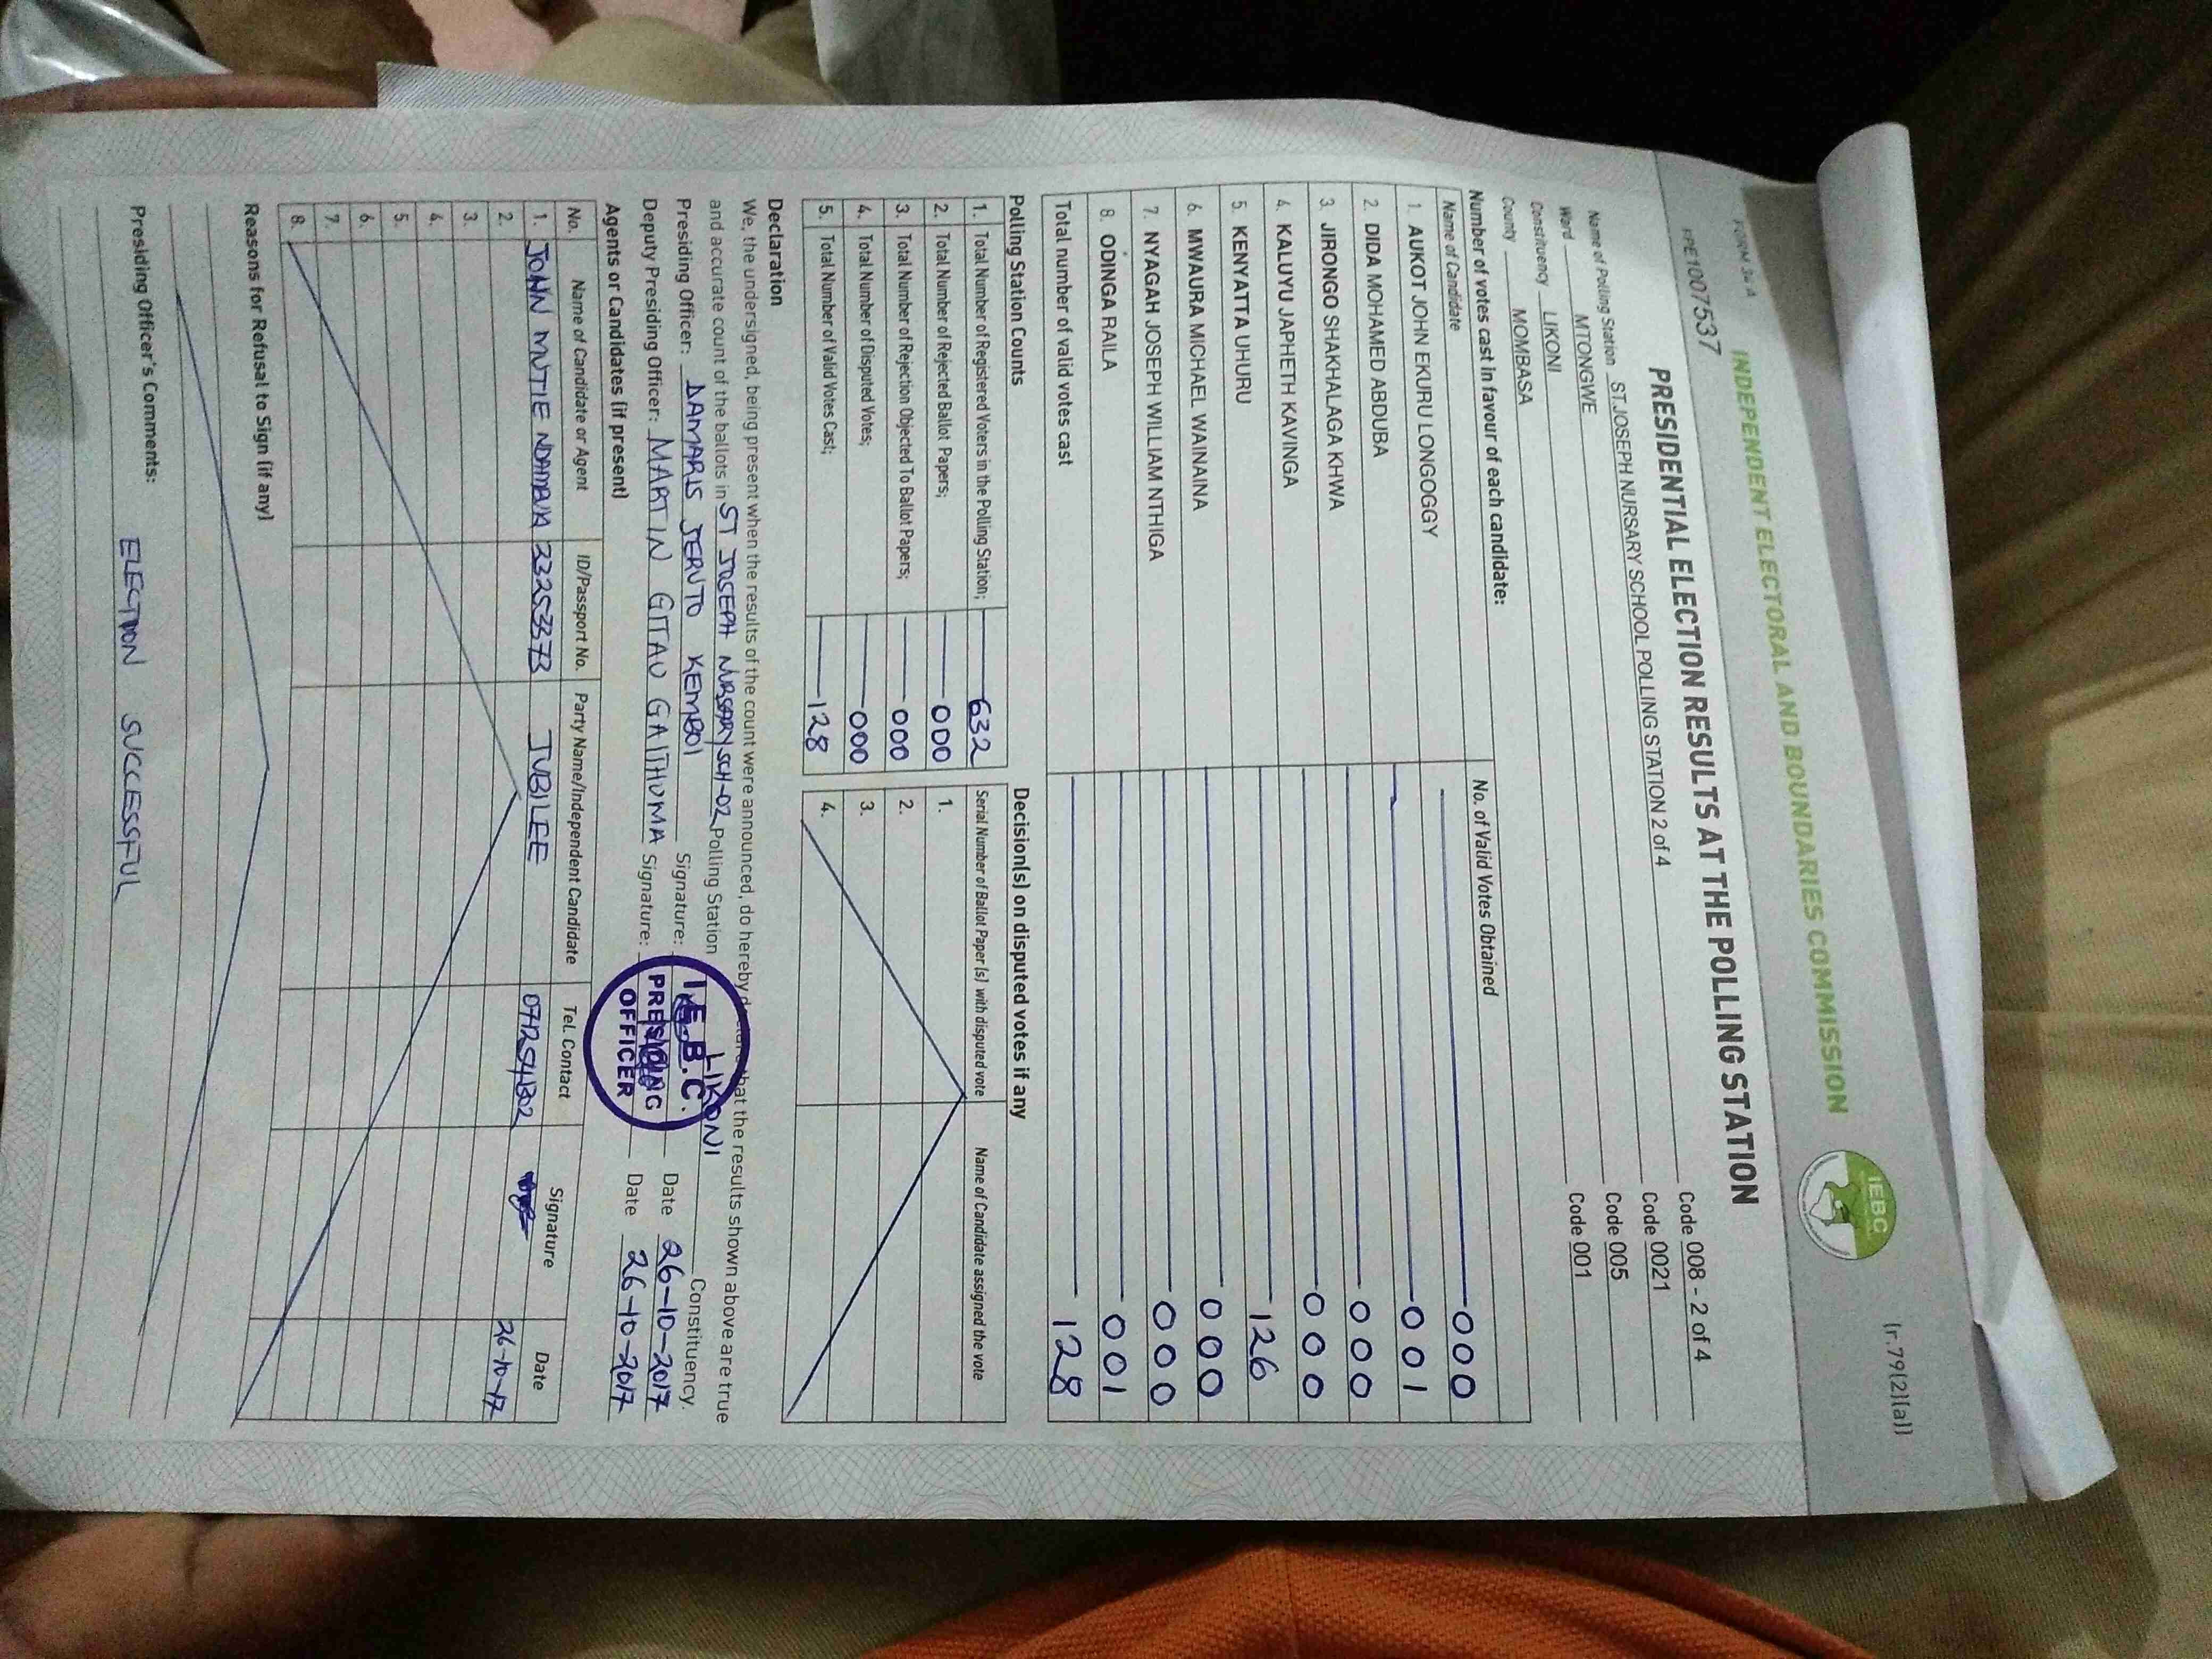 FORM 34 A
(r.79(2)(a))
INDEPENDENT ELECTORAL AND BOUNDARIES COMMISSION
IEBC
PRESIDENTIAL ELECTION RESULTS AT THE POLLING STATION
FPE1007537
Name of Polling Station ST.JOSEPH NURSARY SCHOOL POLLING STATION 2 of 4 Code 008 - 2 of 4
Ward MTONGWE Code 0021
Constituency LIKONI Code 005
County MOMBASA Code 001
Number of votes cast in favour of each candidate:
Name of Candidate No. of Valid Votes Obtained
1. AUKOT JOHN EKURU LONGOGGY 000
2. DIDA MOHAMED ABDUBA 001
3. JIRONGO SHAKHALAGA KHWA 000
4. KALUYU JAPHETH KAVINGA 000
5. KENYATTA UHURU 126
6. MWAURA MICHAEL WAINAINA 000
7. NYAGAH JOSEPH WILLIAM NTHIGA 000
8. ODINGA RAILA 001
Total number of valid votes cast 128
Polling Station Counts Decision(s) on disputed votes if any
1. Total Number of Registered Voters in the Polling Station; 632 Serial Number of Ballot Paper (s) with disputed vote Name of Candidate assigned the vote
2. Total Number of Rejected Ballot Papers; 000 1.
3. Total Number of Rejection Objected To Ballot Papers; 000 2.
4. Total Number of Disputed Votes; 000 3.
5. Total Number of Valid Votes Cast; 128 4.
Declaration
We, the undersigned, being present when the results of the count were announced, do hereby declare that the results shown above are true
and accurate count of the ballots in ST JOSEPH NURSARY SCH-02 Polling Station LIKONI Constituency.
Presiding Officer: DAMARIS JERUTO KEMBOI Signature: Date 26-10-2017
Deputy Presiding Officer: MARTIN GITAU GAITHUMA Signature: Date 26-10-2017
I.E.B.C.
PRESIDING
OFFICER
Agents or Candidates (if present)
No. Name of Candidate or Agent ID/Passport No. Party Name/Independent Candidate Tel. Contact Signature Date
1. JOHN MUTIE 33253373 JUBILEE 0712541302 26-10-17
2.
3.
4.
5.
6.
7.
8.
Reasons for Refusal to Sign (if any)
Presiding Officer's Comments: ELECTION SUCCESSFUL